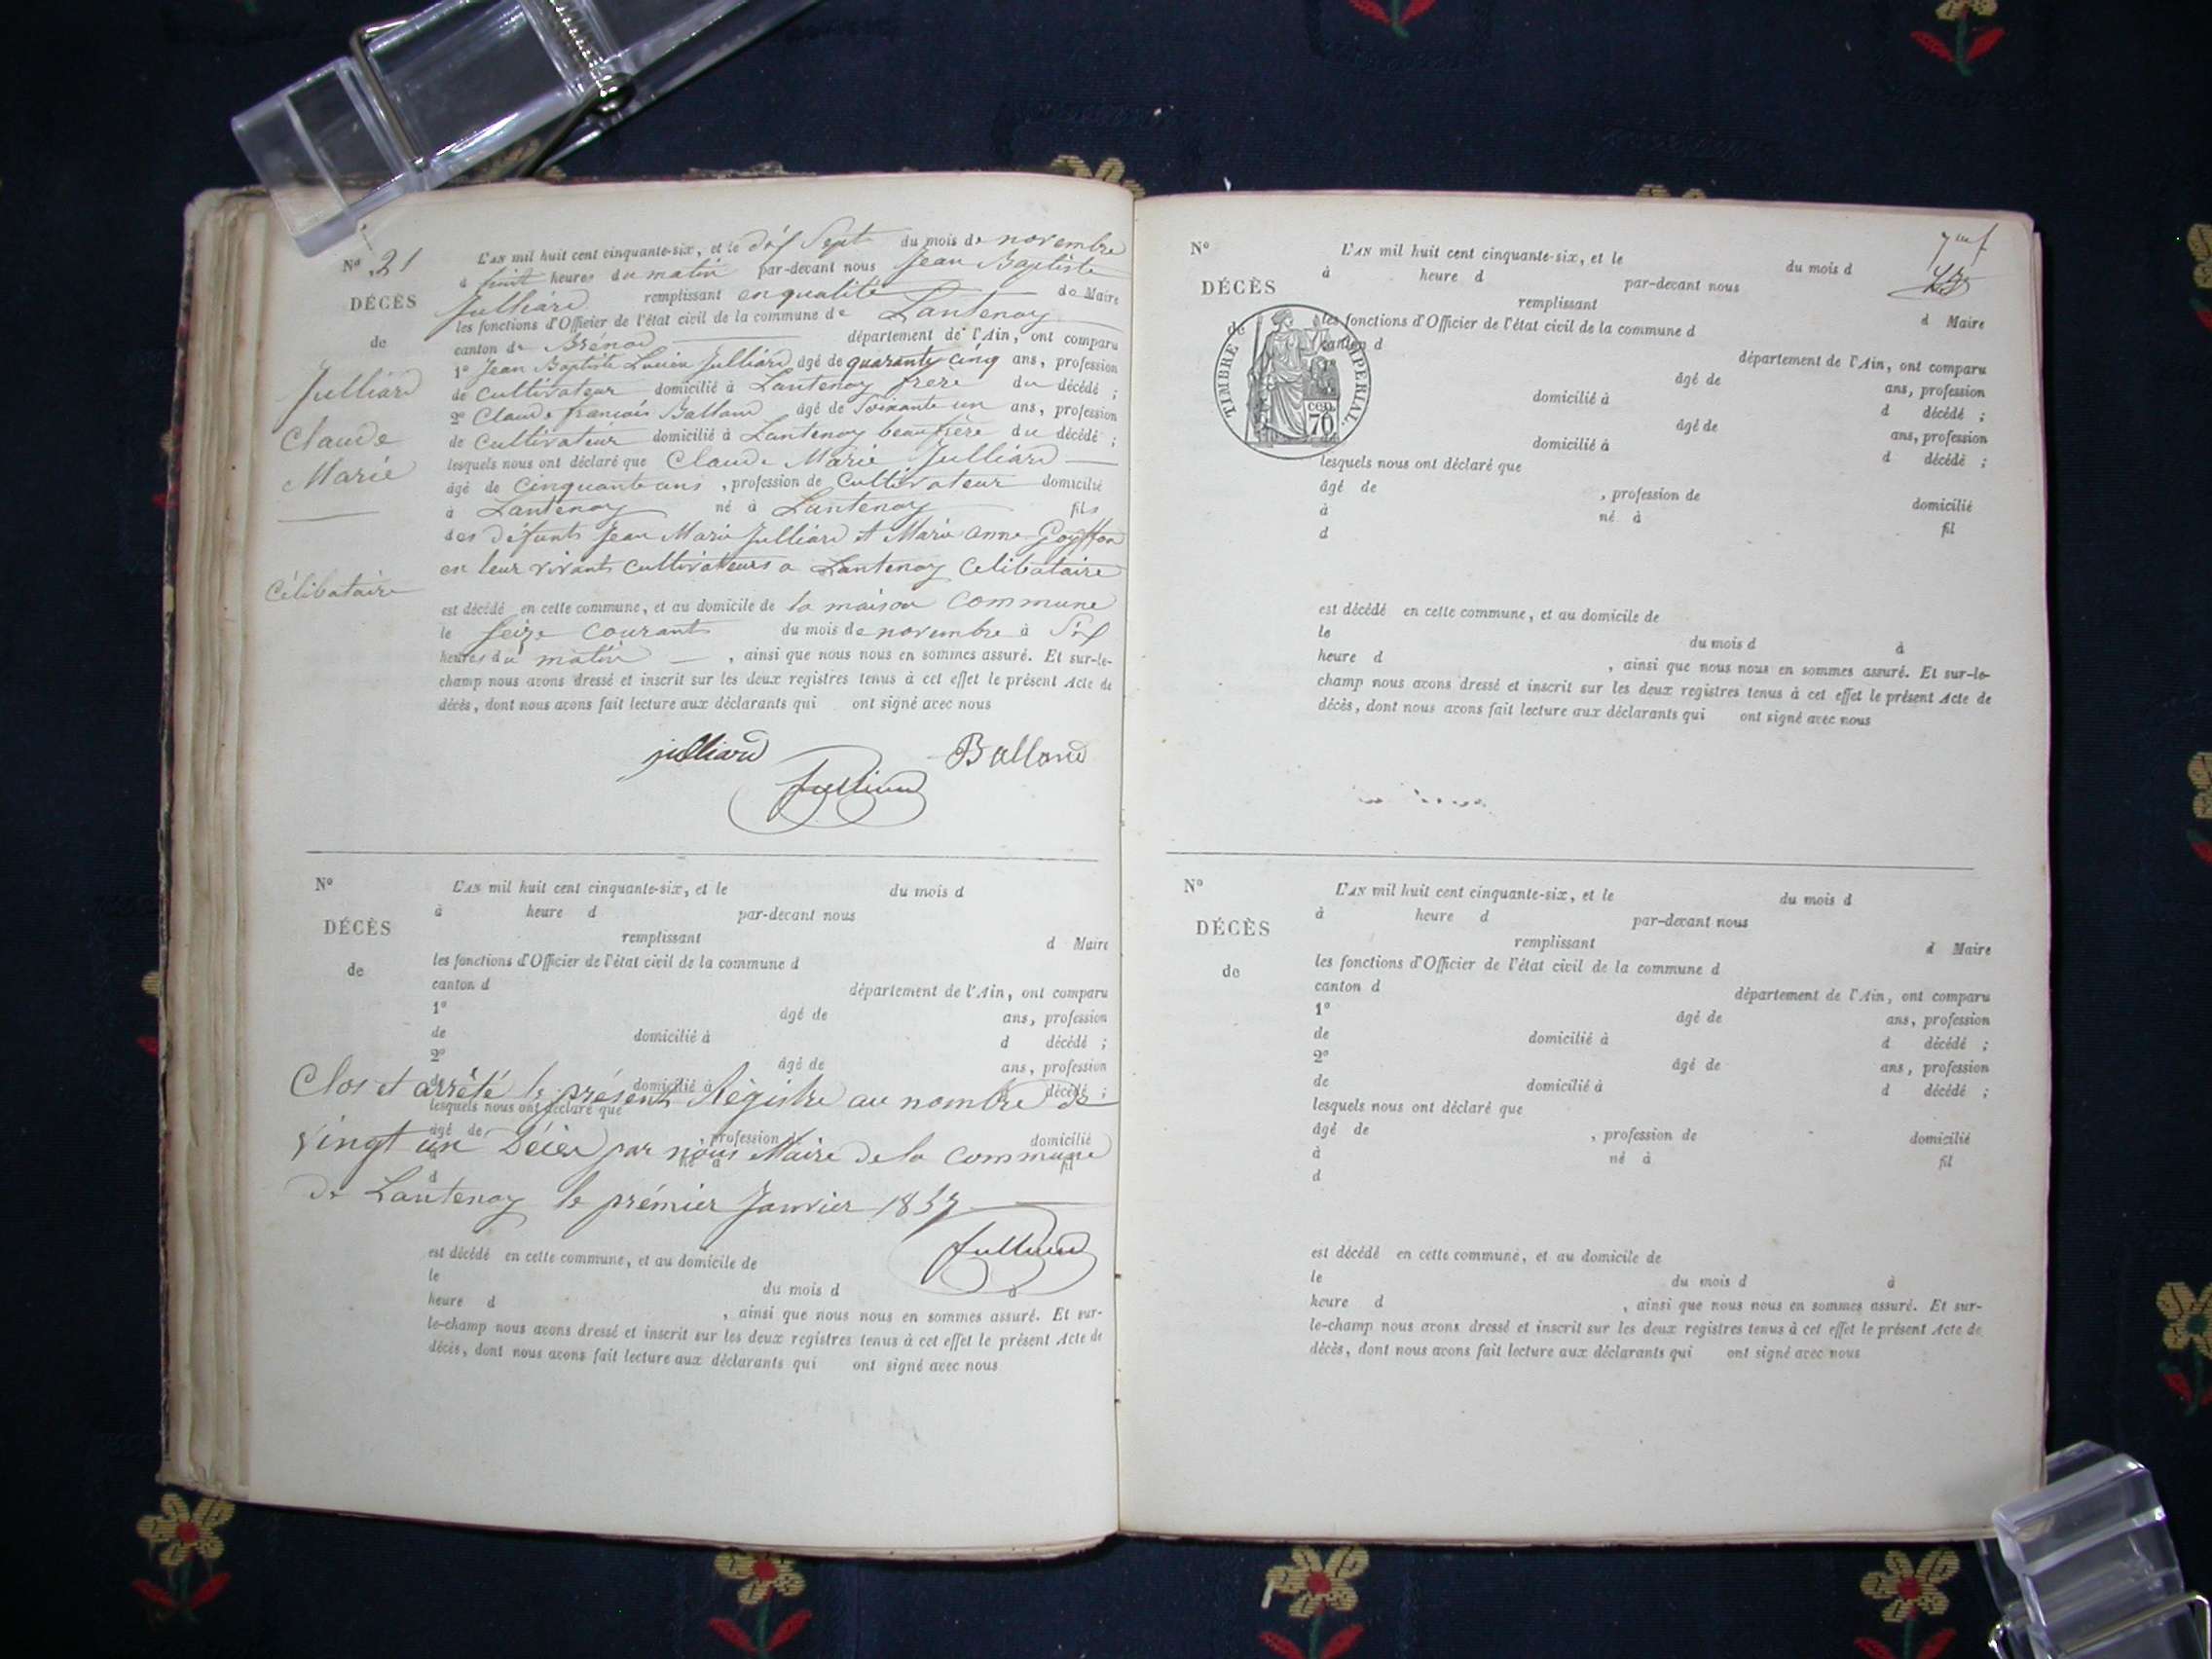 No 21
DÉCÈS
de
Julliard
Claude
Marie
Célibataire
L'AN mil huit cent cinquante-six, et le dix Sept du mois de novembre
à huit heures du matin par-devant nous Jean Baptiste
Julliard remplissant en qualité de Maire
les fonctions d'Officier de l'état civil de la commune de Lantenay
canton de Brenod département de l'Ain, ont comparu
1o Jean Baptiste Lucien Julliard âgé de quarante cinq ans, profession
de Cultivateur domicilié à Lantenay frere du décédé ;
2o Claude francois Balland âgé de Soixante un ans, profession
de Cultivateur domicilié à Lantenay beaufrère du décédé ;
lesquels nous ont déclaré que Claude Marie Julliard
âgé de Cinquante ans , profession de Cultivateur domicilié
à Lantenay né à Lantenay fils
des défunts Jean Marie Julliard et Marie anne Goyffon
en leur vivants Cultivateurs a Lantenay Celibataire
est décédé en cette commune, et au domicile de la maison Commune
le Seize Courant du mois de novembre à Six
heures du matin , ainsi que nous nous en sommes assuré. Et sur-le-
champ nous avons dressé et inscrit sur les deux registres tenus à cet effet le présent Acte de
décès, dont nous avons fait lecture aux déclarants qui ont signé avec nous
julliard Balland
Julliard
No
DÉCÈS
de
L'AN mil huit cent cinquante-six, et le du mois d
à heure d par-devant nous
remplissant d Maire
les fonctions d'Officier de l'état civil de la commune d
canton d département de l'Ain, ont comparu
1o âgé de ans, profession
de domicilié à d décédé ;
2o âgé de ans, profession
de domicilié à d décédé ;
Clos et arrêté le présent Régistre au nombre de
lesquels nous ont déclaré que
âgé de , profession de domicilié
vingt un Décès par nous Maire de la Commune
à né à fil
d
de Lantenay le prémier Janvier 1857
Julliard
est décédé en cette commune, et au domicile de
le du mois d à
heure d , ainsi que nous nous en sommes assuré. Et sur-
le-champ nous avons dressé et inscrit sur les deux registres tenus à cet effet le présent Acte de
décès, dont nous avons fait lecture aux déclarants qui ont signé avec nous
No
DÉCÈS
de
TIMBRE IMPERIAL.
cen.
70
L'AN mil huit cent cinquante-six, et le du mois d
à heure d par-devant nous
remplissant d Maire
les fonctions d'Officier de l'état civil de la commune d
canton d département de l'Ain, ont comparu
âgé de ans, profession
domicilié à d décédé ;
âgé de ans, profession
domicilié à d décédé ;
lesquels nous ont déclaré que
âgé de , profession de domicilié
à né à fil
d
est décédé en cette commune, et au domicile de
le du mois d à
heure d , ainsi que nous nous en sommes assuré. Et sur-le-
champ nous avons dressé et inscrit sur les deux registres tenus à cet effet le présent Acte de
décès, dont nous avons fait lecture aux déclarants qui ont signé avec nous
No
DÉCÈS
de
L'AN mil huit cent cinquante-six, et le du mois d
à heure d par-devant nous
remplissant d Maire
les fonctions d'Officier de l'état civil de la commune d
canton d département de l'Ain, ont comparu
1o âgé de ans, profession
de domicilié à d décédé ;
2o âgé de ans, profession
de domicilié à d décédé ;
lesquels nous ont déclaré que
âgé de , profession de domicilié
à né à fil
d
est décédé en cette commune, et au domicile de
le du mois d à
heure d , ainsi que nous nous en sommes assuré. Et sur-
le-champ nous avons dressé et inscrit sur les deux registres tenus à cet effet le présent Acte de
décès, dont nous avons fait lecture aux déclarants qui ont signé avec nous